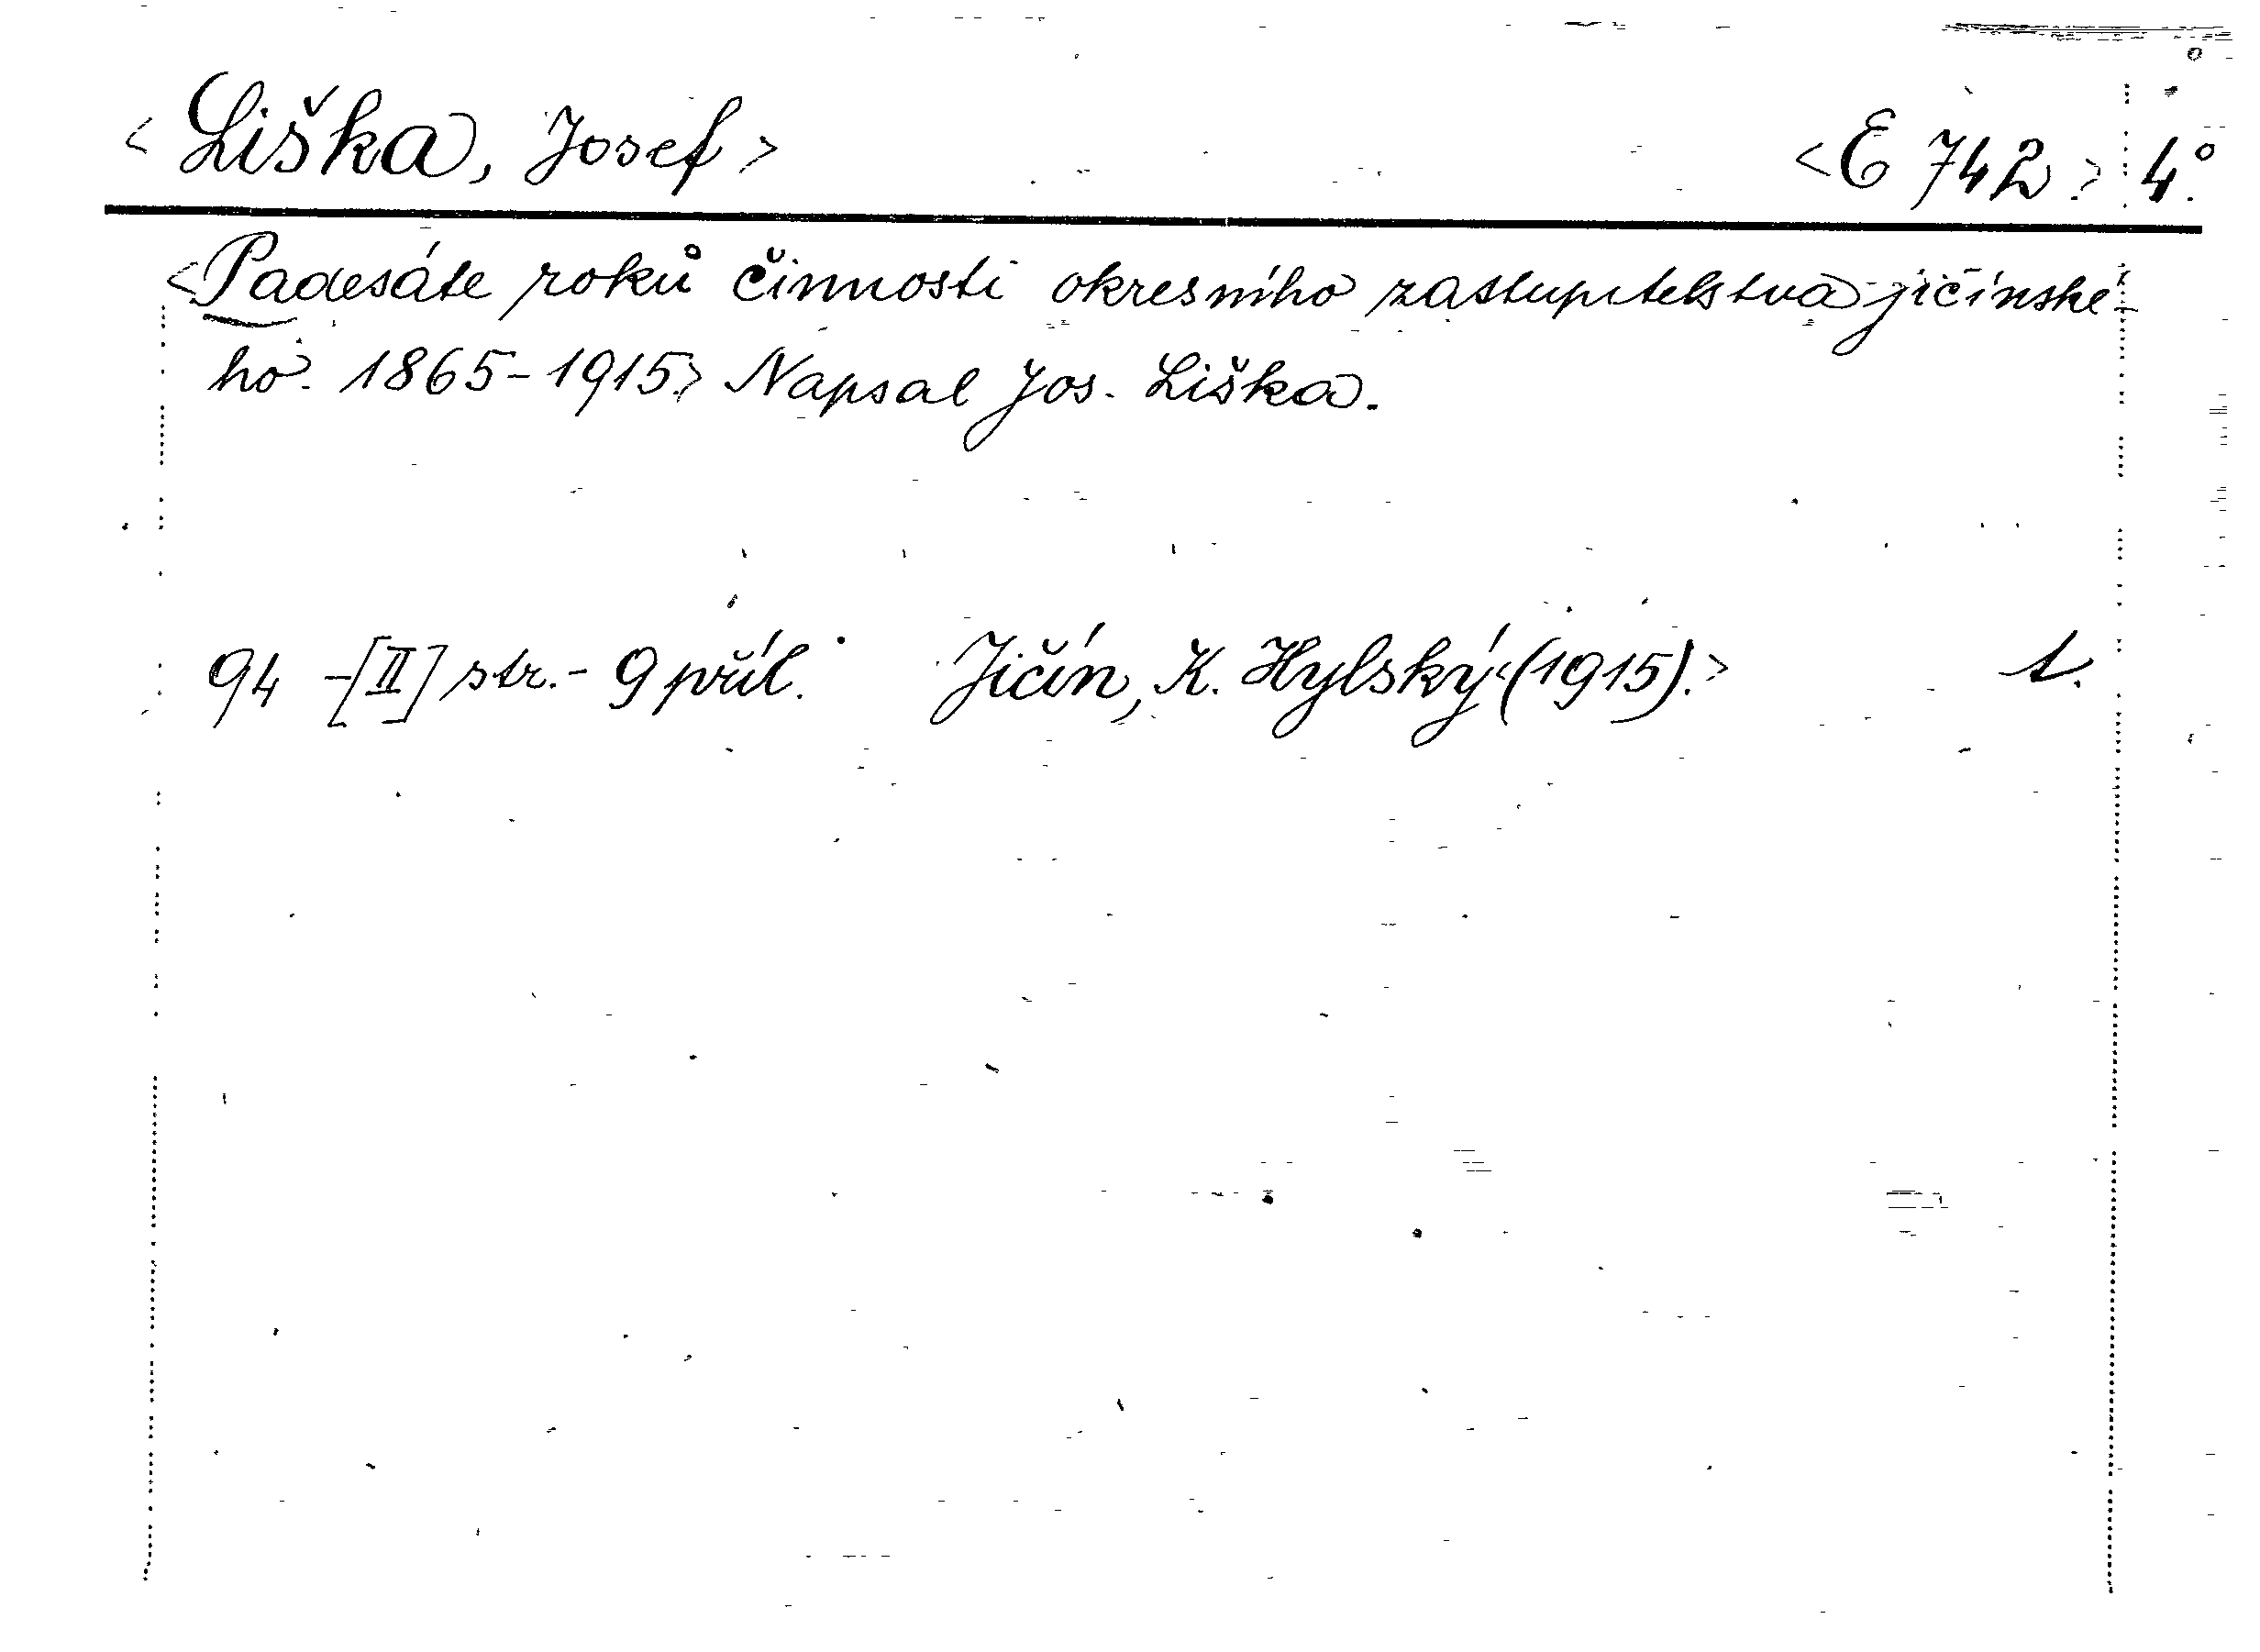 <Liška, Josef> <E 742> 4°.
<Padesáte roků činnosti okresního zastupitelstva jičínske-
ho. 1865-1915.> Napsal Jos. Liška.
94 -[II] str. - 9 příl. Jičín, K. Hylský <(1915).> 1.